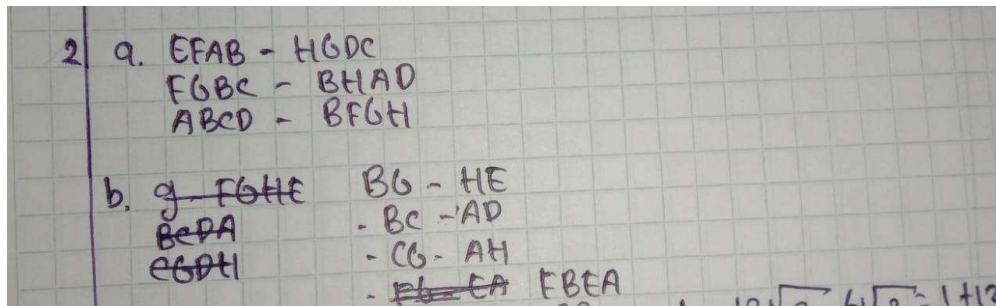 2 a. EFAB - HGDC
FGBC - BHAD
ABCD - BFGH
b. g - FGHE BG - HE
BCDA . BC - AD
CGDH - CG - AH
- Fb = EA FBEA